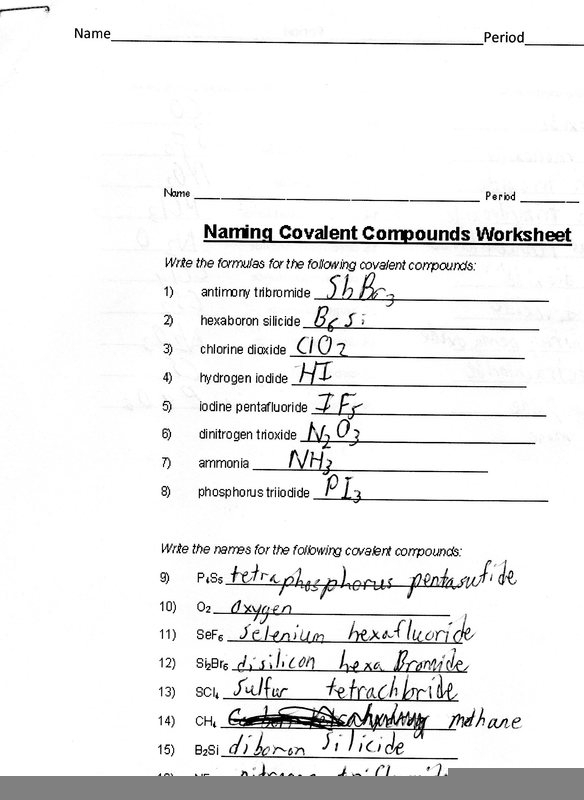 Name_______________ Period_____
Name _______________ Period _______
Naming Covalent Compounds Worksheet
Write the formulas for the following covalent compounds:
1) antimony tribromide SbBr₃
2) hexaboron silicide B₆Si
3) chlorine dioxide ClO₂
4) hydrogen iodide HI
5) iodine pentafluoride IF₅
6) dinitrogen trioxide N₂O₃
7) ammonia NH₃
8) phosphorus triiodide PI₃
Write the names for the following covalent compounds:
9) P₄S₅ tetraphosphorus pentasufide
10) O₂ oxygen
11) SeF₆ selenium hexafluoride
12) Si₂Br₆ disilicon hexa Bromide
13) SCl₄ Sulfur tetrachloride
14) CH₄ methane
15) B₂Si diboron silicide